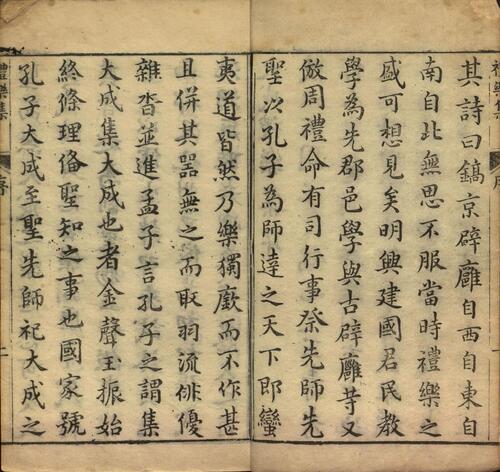 其詩曰鎬京辟廱自西自東自
南自北無思不服當時禮樂之
盛可想見矣明興建國君民教
學為先郡邑學與古辟廱䓁又
倣周禮命有司行事祭先師先
聖以孔子為師達之天下即蠻
夷道皆然乃樂獨廢而不作甚
且併其器無之而取羽流俳優
雜沓並進孟子言孔子之謂集
大成集大成也者金聲玉振始
終條理俻聖知之事也國家號
孔子大成至聖先師祀大成之
禮樂集
序
二